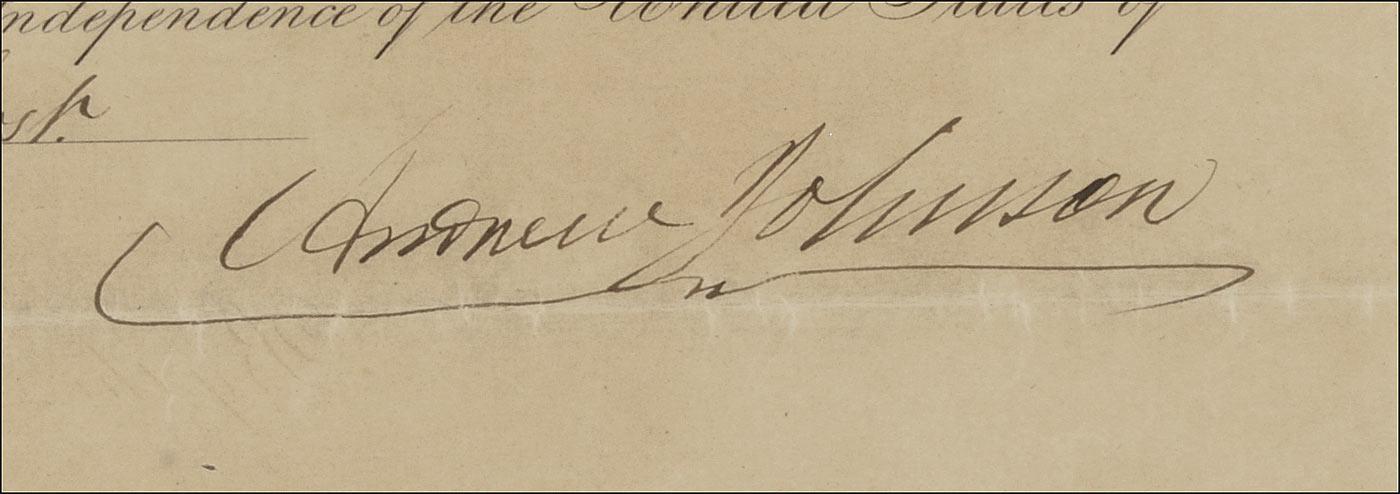 ndependence of the United States of
st.
Andrew Johnson